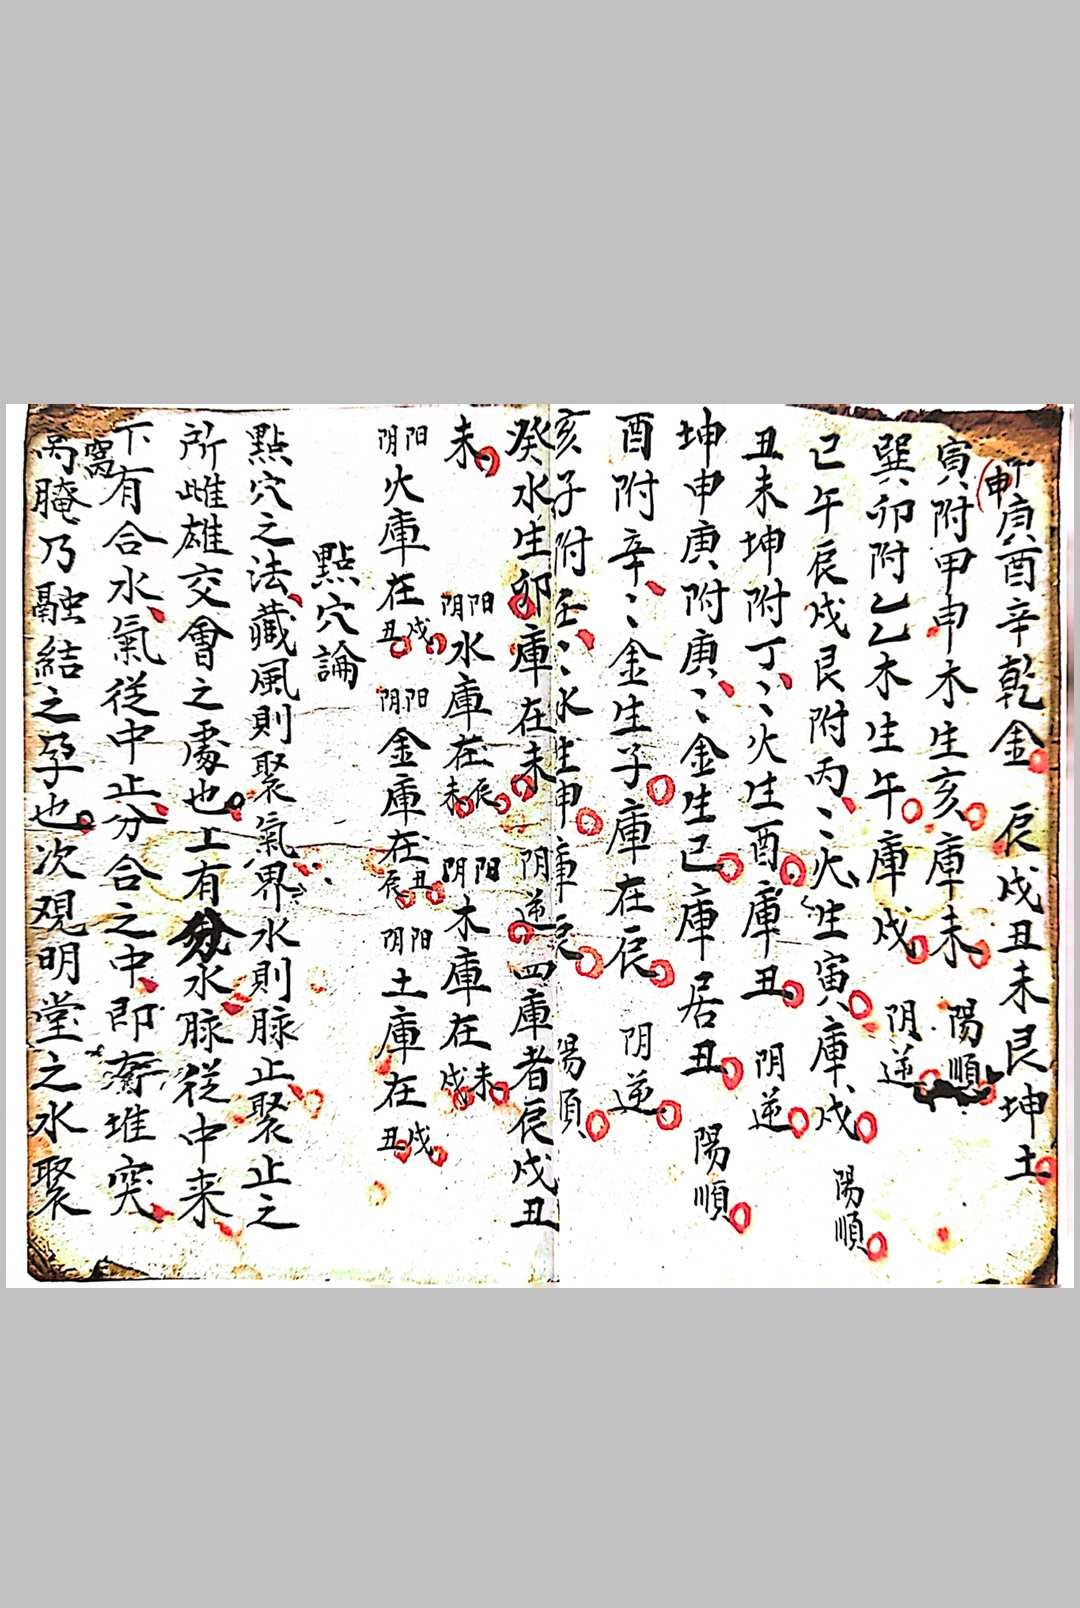 申庚酉辛乾金 辰戌丑未艮坤土
寅附甲申木生亥庫未 陽順
巽卯附乙乙木生午庫戌 阴逆
己午辰戌艮附丙〻火生寅庫戌 陽順
丑未坤附丁〻火生酉庫丑 阴逆
坤申庚附庚〻金生己庫居丑 陽順
酉附辛〻金生子庫在辰 阴逆
亥子附壬〻水生申庫辰 陽順
癸水生卯庫在未 阴逆四庫者辰戌丑
未 阳阴水庫在辰未 阳阴木庫在未戌
阳阴火庫在戌丑 阳阴金庫在丑辰 阳阴土庫在戌丑
點穴論
點穴之法藏風則聚氣界水則脉止聚止之
所雌雄交會之處也上有分水脉從中来
下有合水氣從中止分合之中即斎堆突
窝
窩腌乃融結之孕也次观明堂之水聚